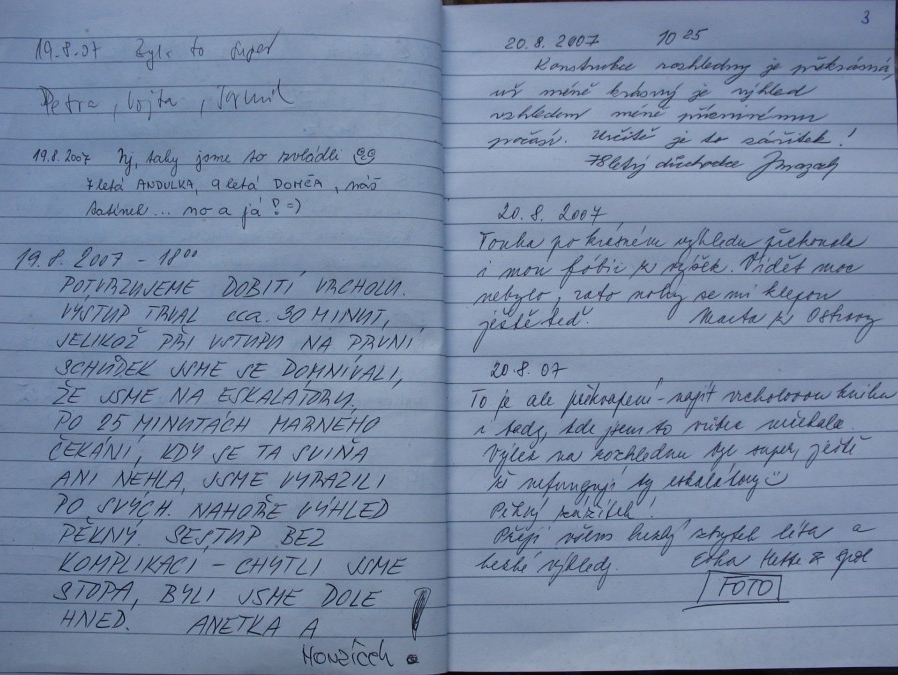 19.8.07 Bylo to super
Petra, Vojta,
19.8.2007 Jj, taky jsme to zvládli
7letá ANDULKA, 9letá DOMČA, náš
tatínek... no a já! =)
19.8. 2007 - 18⁰⁰
POTVRZUJEME DOBITÍ VRCHOLU.
VÝSTUP TRVAL cca. 30 MINUT,
JELIKOŽ PŘI VSTUPU NA PRVNÍ
SCHŮDEK JSME SE DOMNÍVALI,
ŽE JSME NA ESKALÁTORU.
PO 25 MINUTÁCH MARNÉHO
ČEKÁNÍ, KDY SE TA SVIŇA
ANI NEHLA, JSME VYRAZILI
PO SVÝCH. NAHOŘE VÝHLED
PĚKNÝ. SESTUP BEZ
KOMPLIKACÍ - CHYTLI JSME
STOPA, BYLI JSME DOLE
HNED. ANETKA A
Honzíček!
3
20.8. 2007 10²⁵
Konstrukce rozhledny je překrásná,
už méně krásný je výhled
vzhledem méně příznivému
počasí. Určitě je to zážitek!
78letý důchodce
20.8. 2007
Touha po krásném výhledu překonala
i mou fóbii z výšek. Vidět moc
nebylo, zato nohy se mi klepou
ještě teď. Marta z Ostravy
20.8.07
To je ale překvapení - najít vrcholovou knihu
i tady, kde jsem to vůbec nečekala.
Výlet na rozhlednu byl super, ještě
že nefungují ty eskalátory
Pěkný zážitek!
Přeji všem hezký zbytek léta a
hezké výhledy. & spol
FOTO